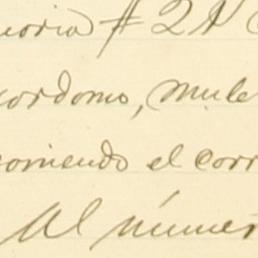 moria # 2 N
ordomo, mule
omiendo el corr
Al númer